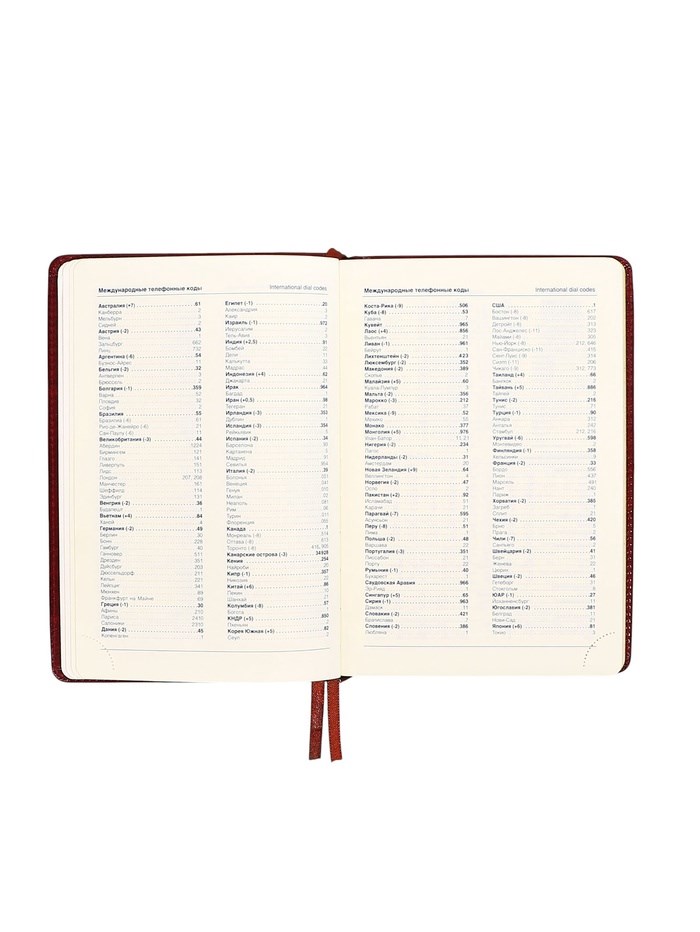 Международные телефонные коды International dial codes
Австралия (+7) 61
Канберра 2
Мельбурн 3
Сидней 2
Австрия (-2) 43
Вена
Зальцбург 662
Линц 732
Аргентина (-6) 54
Буэнос-Айрес 11
Бельгия (-2) 32
Антверпен 3
Брюссель 2
Болгария (-1) 359
Варна 52
Пловдив 32
София 2
Бразилия 55
Бразилиа (-6) 61
Рио-де-Жанейро (-6) 21
Сан-Паулу (-6) 11
Великобритания (-3) 44
Абердин 1224
Бирмингем 121
Глазго 141
Ливерпуль 151
Лидс 113
Лондон 207, 208
Манчестер 161
Шеффилд 114
Эдинбург 131
Венгрия (-2) 36
Будапешт 1
Вьетнам (+4) 84
Ханой 4
Германия (-2) 49
Берлин 30
Бонн 228
Гамбург 40
Ганновер 511
Дрезден 351
Дуйсбург 203
Дюссельдорф 211
Кельн 221
Лейпциг 341
Мюнхен 89
Франкфурт на Майне 69
Греция (-1) 30
Афины 210
Лариса 2410
Салоники 2310
Дания (-2) 45
Копенгаген 1
Египет (-1) 20
Александрия 3
Каир 2
Израиль (-1) 972
Иерусалим 2
Тель-Авив 3
Индия (+2,5) 91
Бомбей
Дели 11
Калькутта 33
Мадрас 44
Индонезия (+4) 62
Джакарта 21
Ирак 964
Багдад 1
Иран (+0,5) 98
Тегеран
Ирландия (-3) 353
Дублин 1
Исландия (-3) 354
Рейкьявик
Испания (-2) 34
Барселона
Картахена
Мадрид
Севилья
Италия (-2) 39
Болонья
Венеция
Генуя
Милан
Неаполь
Рим
Турин
Флоренция
Канада 1
Монреаль (-8) 514
Оттава (-8) 613
Торонто (-8)
Канарские острова (-3) 34928
Кения 254
Найроби 20
Кипр (-1) 357
Никозия 22
Китай (+5) 86
Пекин 10
Шанхай 21
Колумбия (-8) 57
Богота 1
КНДР (+5) 850
Пхеньян 2
Корея Южная (+5) 82
Сеул 2
Международные телефонные коды International dial codes
Коста-Рика (-9) 506
Куба (-8) 53
Гавана 7
Кувейт 965
Лаос (+4) 856
Вьентьян 21
Ливан (-1) 961
Бейрут 1
Лихтенштейн (-2) 423
Люксембург (-2) 352
Македония (-2) 389
Скопье 2
Малайзия (+5) 60
Куала-Лумпур 3
Мальта (-2) 356
Марокко (-3) 212
Рабат 37
Мексика (-9) 52
Мехико 55
Монако 377
Монголия (+5) 976
Улан-Батор 11 21
Нигерия (-2) 234
Лагос 1
Нидерланды (-2) 31
Амстердам 20
Новая Зеландия (+9) 64
Веллингтон 4
Норвегия (-2) 47
Осло 2
Пакистан (+2) 92
Исламабад 51
Карачи 21
Парагвай (-7) 595
Асунсьон 21
Перу (-8) 51
Лима 1
Польша (-2) 48
Варшава 22
Португалия (-3) 351
Лиссабон 21
Порту 22
Румыния (-1) 40
Бухарест 1
Саудовская Аравия 966
Эр-Рияд 1
Сингапур (+5) 65
Сирия (-1) 963
Дамаск 11
Словакия (-2) 421
Братислава 7
Словения (-2) 386
Любляна 1
США 1
Бостон (-8) 617
Вашингтон (-8) 202
Детройт (-8) 313
Лос-Анджелес (-11) 323
Майами (-8) 305
Нью-Йорк (-8) 212, 646
Сан-Франциско (-11) 415
Сент-Луис (-9) 314
Сиэтл (-11) 206
Чикаго (-9) 312, 773
Таиланд (+4) 66
Бангкок
Тайвань (+5) 886
Тайпей 2
Тунис (-2) 216
Тунис
Турция (-1) 90
Анкара 312
Анталья 242
Стамбул 212, 216
Уругвай (-6) 598
Монтевидео 2
Финляндия (-1) 358
Хельсинки 9
Франция (-2) 33
Бордо
Лион
Марсель
Нант
Париж
Хорватия (-2) 385
Загреб 1
Сплит 21
Чехия (-2) 420
Брно 5
Прага 2
Чили (-7) 56
Сантьяго 2
Швейцария (-2) 41
Берн 31
Женева 22
Цюрих 1
Швеция (-2) 46
Гетеборг 31
Стокгольм 8
ЮАР (-1) 27
Йоханнесбург 11
Югославия (-2) 381
Белград 11
Нови-Сад 21
Япония (+6) 81
Токио 3